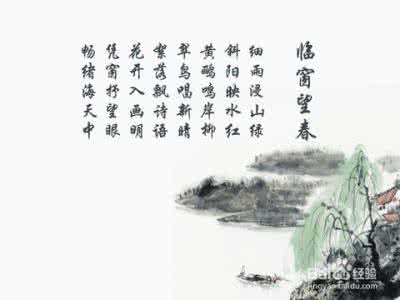 临窗望春
细雨漫山绿
斜阳映水红
黄鹂鸣岸柳
翠鸟唱新晴
絮落飘诗语
花开入画明
凭窗抒望眼
畅绪海天中
Baidu 经验
jingyan.baidu.com